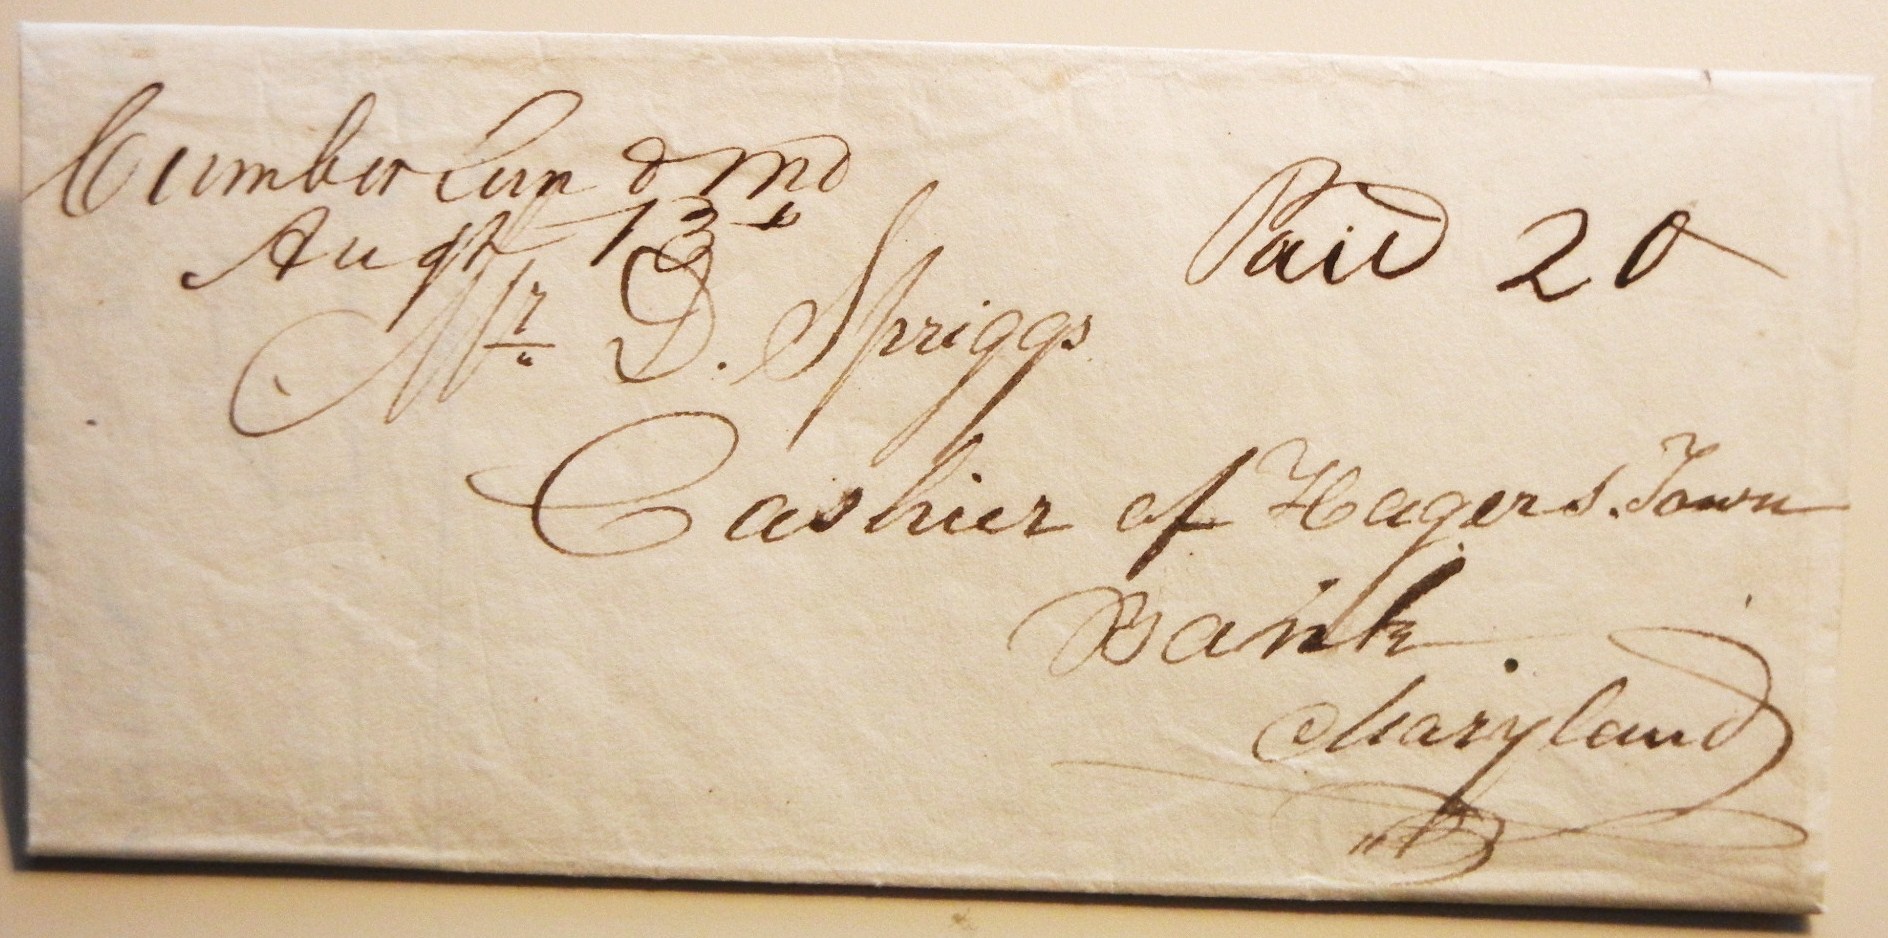 Cumberland Md
Augt 13
Paid 20
Mr D. Spriggs
Cashier of Hagers.Town
Bank.
Maryland